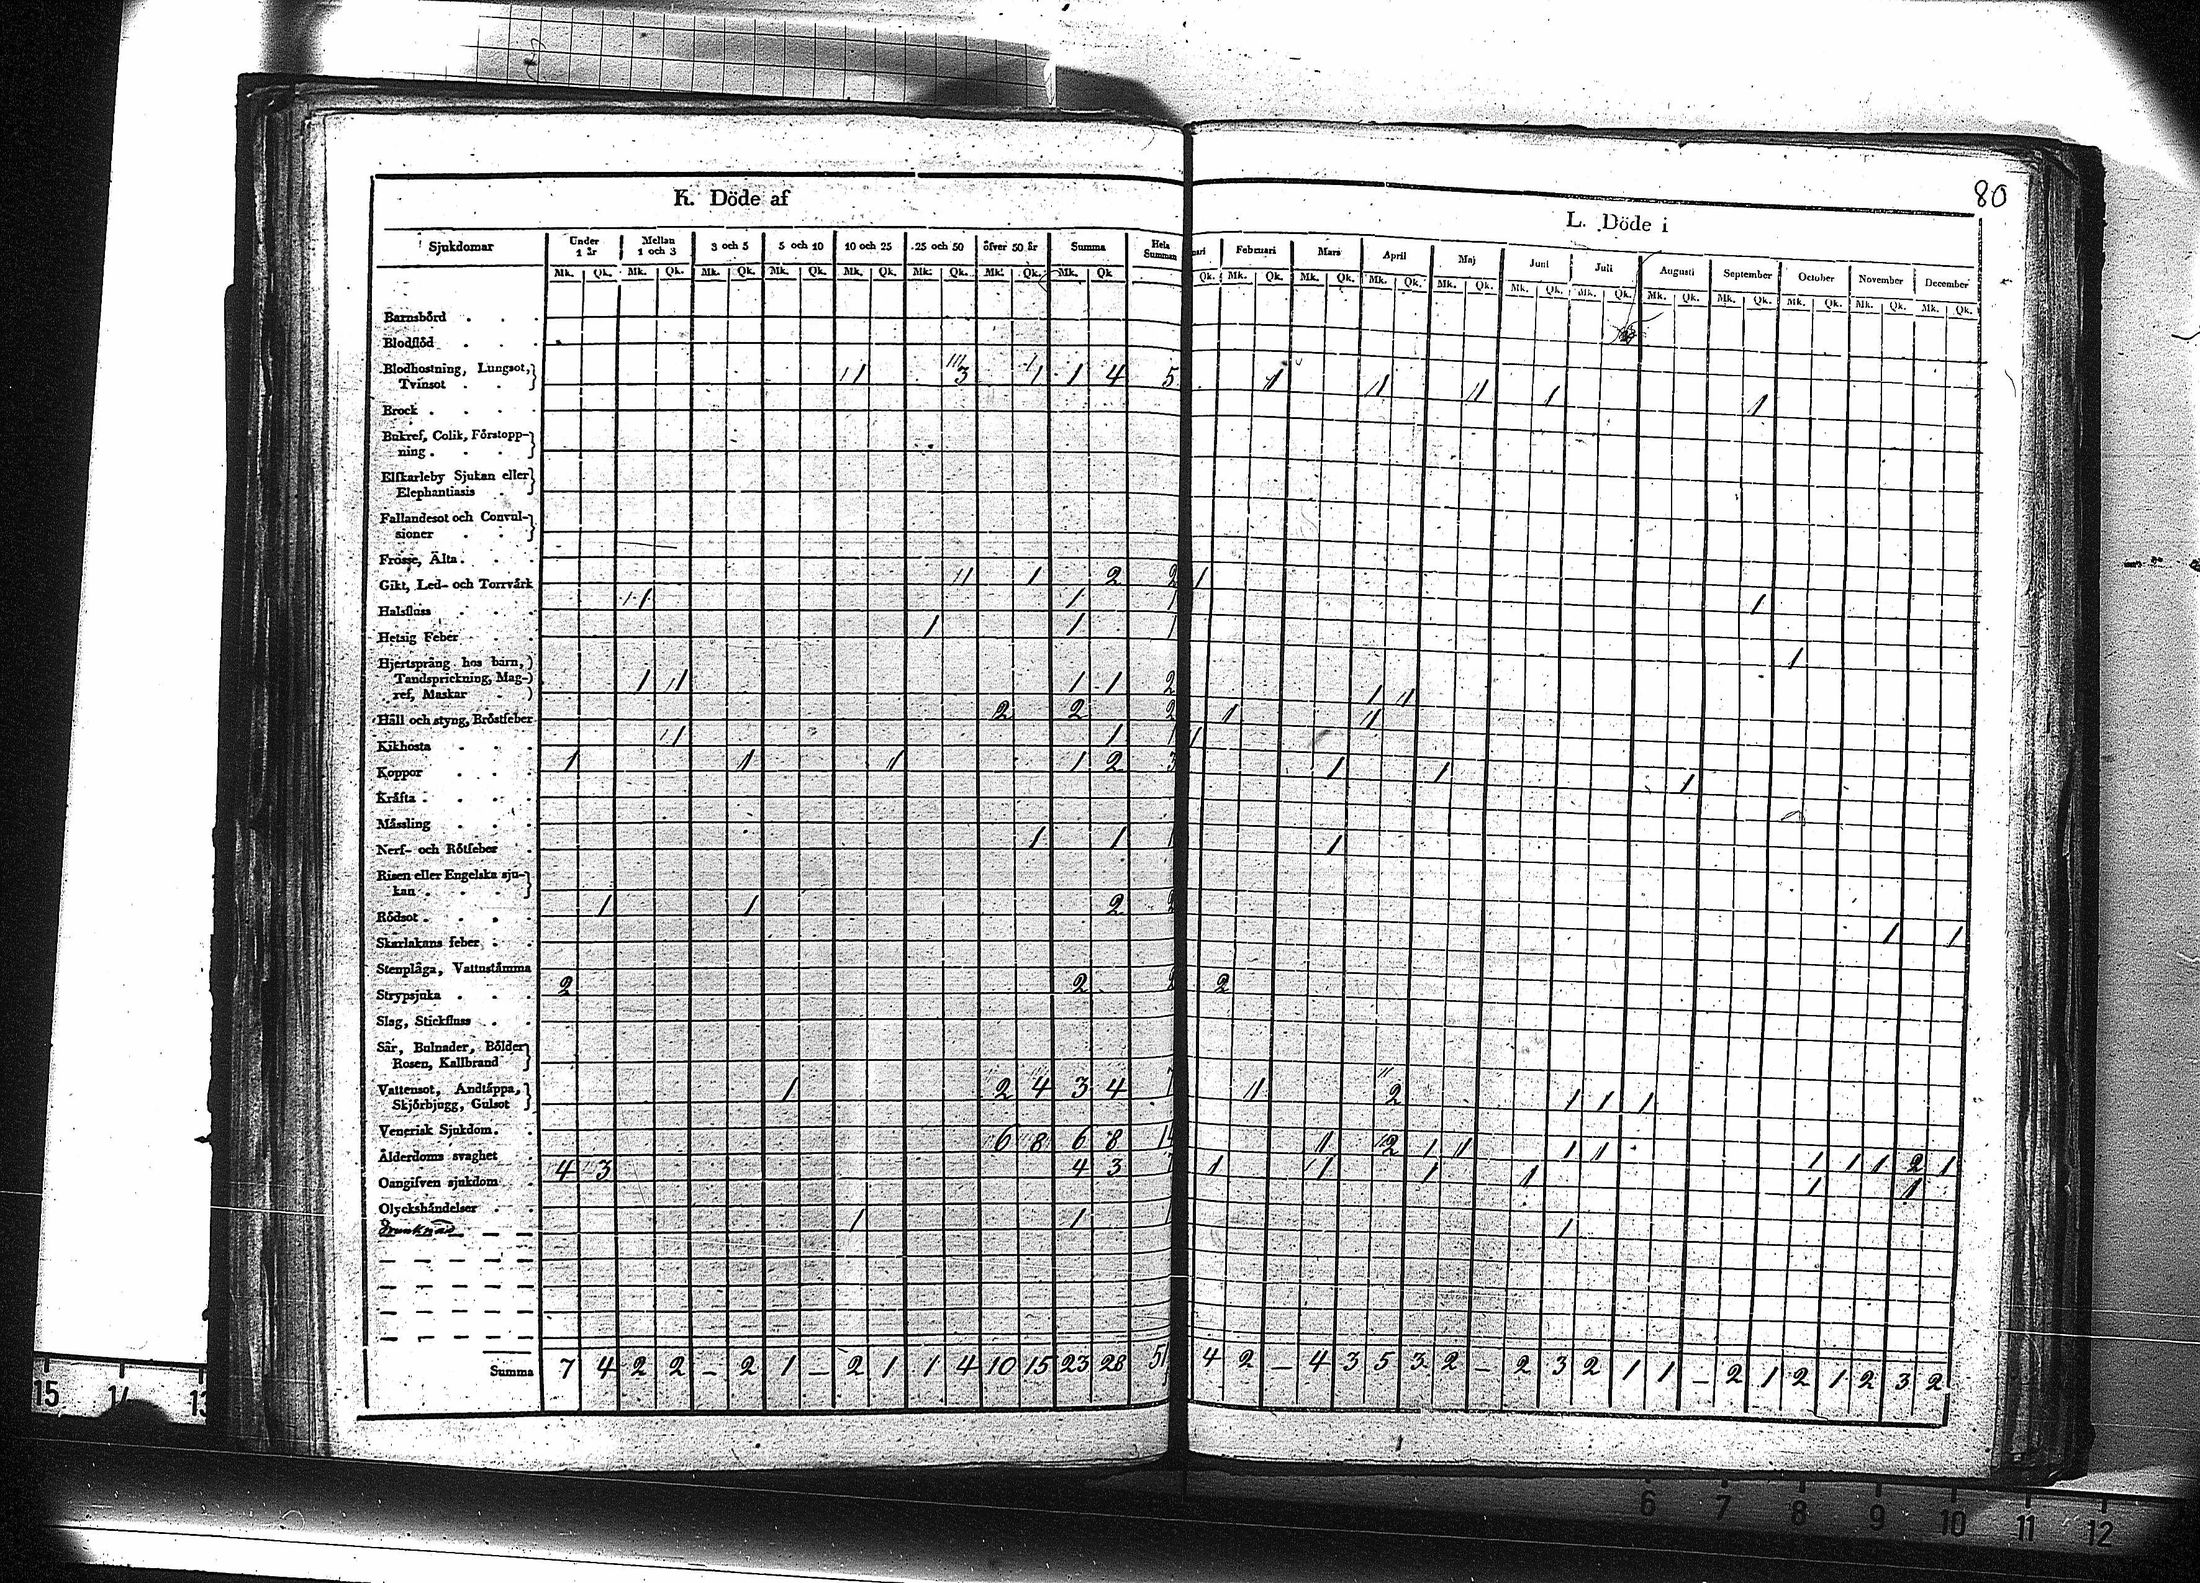 80
K. Döde af
Sjukdomar Under 1 år Mellan 1 och 3 3 och 5 5 och 10 10 och 25 25 och 50 öfver 50 år Summa Hela Summan
Mk. Qk. Mk. Qk. Mk. Qk. Mk. Qk. Mk. Qk. Mk. Qk. Mk. Qk. Mk. Qk
Barnsbörd
Blodflöd
Blodhostning, Lungsot,
Tvinsot 1 3 1 1 4 5
Brock
Bukref, Colik, Förstopp-
ning
Elfkarleby Sjukan eller
Elephantiasis
Fallandesot och Convul-
sioner
Frossa, Älta
Gikt, Led- och Torrvärk 1 1 2 2
Halsfluss 1 1 1
Hetsig Feber 1 1 1
Hjertsprång hos barn,
Tandsprickning, Mag-
ref, Maskar 1 1 1 1 2
Håll och styng, Bröstfeber 2 2 2
Kikhosta 1 1 1
Koppor 1 1 1 1 2 3
Kräfta
Mässling
Nerf- och Rötfeber 1 1 1
Risen eller Engelska sju-
kan
Rödsot 1 1 2 2
Skarlakans feber
Stenplåga, Vattustämma
Strypsjuka 2 2 2
Slag, Stickfluss
Sår, Bulnader, Bölder
Rosen, Kallbrand
Vattensot, Andtäppa,
Skjörbjugg, Gulsot 1 2 4 3 4 7
Venerisk Sjukdom
Ålderdoms svaghet 6 8 6 8 14
Oangifven sjukdom 4 3 4 3 7
Olyckshändelser
Drunknad 1 1 1
Summa 7 4 2 2 – 2 1 – 2 1 1 4 10 15 23 28 51
L. Döde i
ari Februari Mars April Maj Juni Juli Augusti September October November December
Qk. Mk. Qk. Mk. Qk. Mk. Qk. Mk. Qk. Mk. Qk. Mk. Qk. Mk. Qk. Mk. Qk. Mk. Qk. Mk. Qk. Mk. Qk.
1 1 1 1 1
1
1
1
1 1
1 1
1
1 1 1
1
1 1
2
1 2 1 1 1
1 2 1 1 1 1 1 1 1 2 1
1 1 1 1 1 1
1
4 2 – 4 3 5 3 2 – 2 3 2 1 1 – 2 1 2 1 2 3 2
15 14 13
6 7 8 9 10 11 12